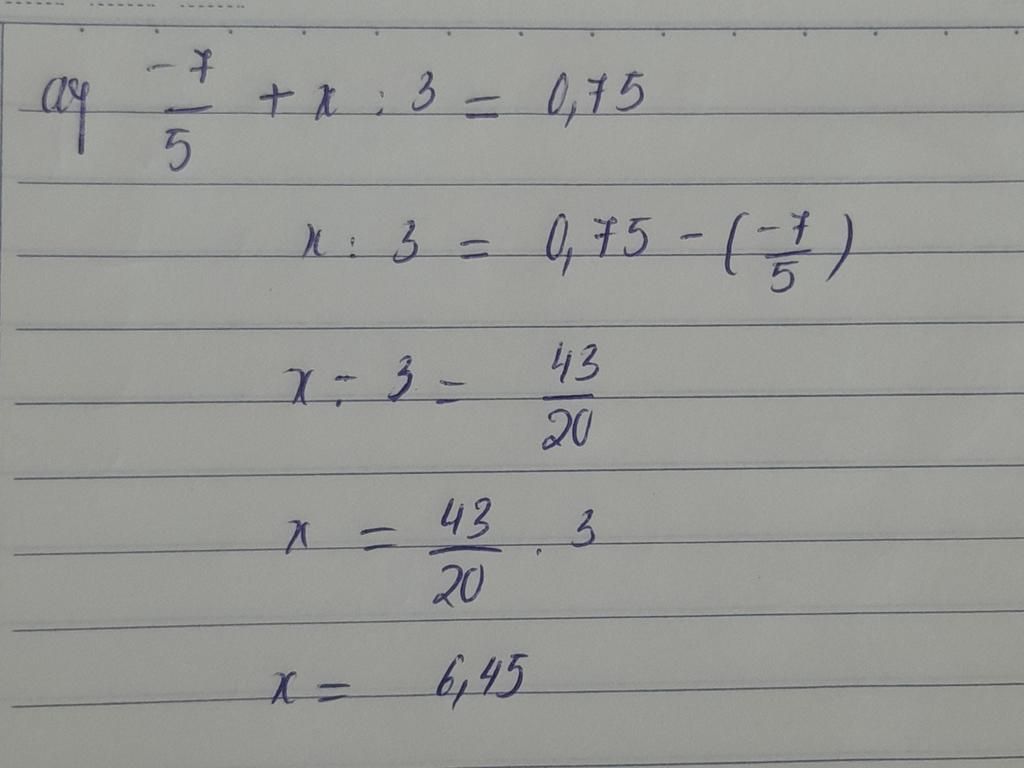 a) -7/5 + x : 3 = 0,75
x : 3 = 0,75 - (-7/5)
x : 3 = 43/20
x = 43/20 . 3
x = 6,45